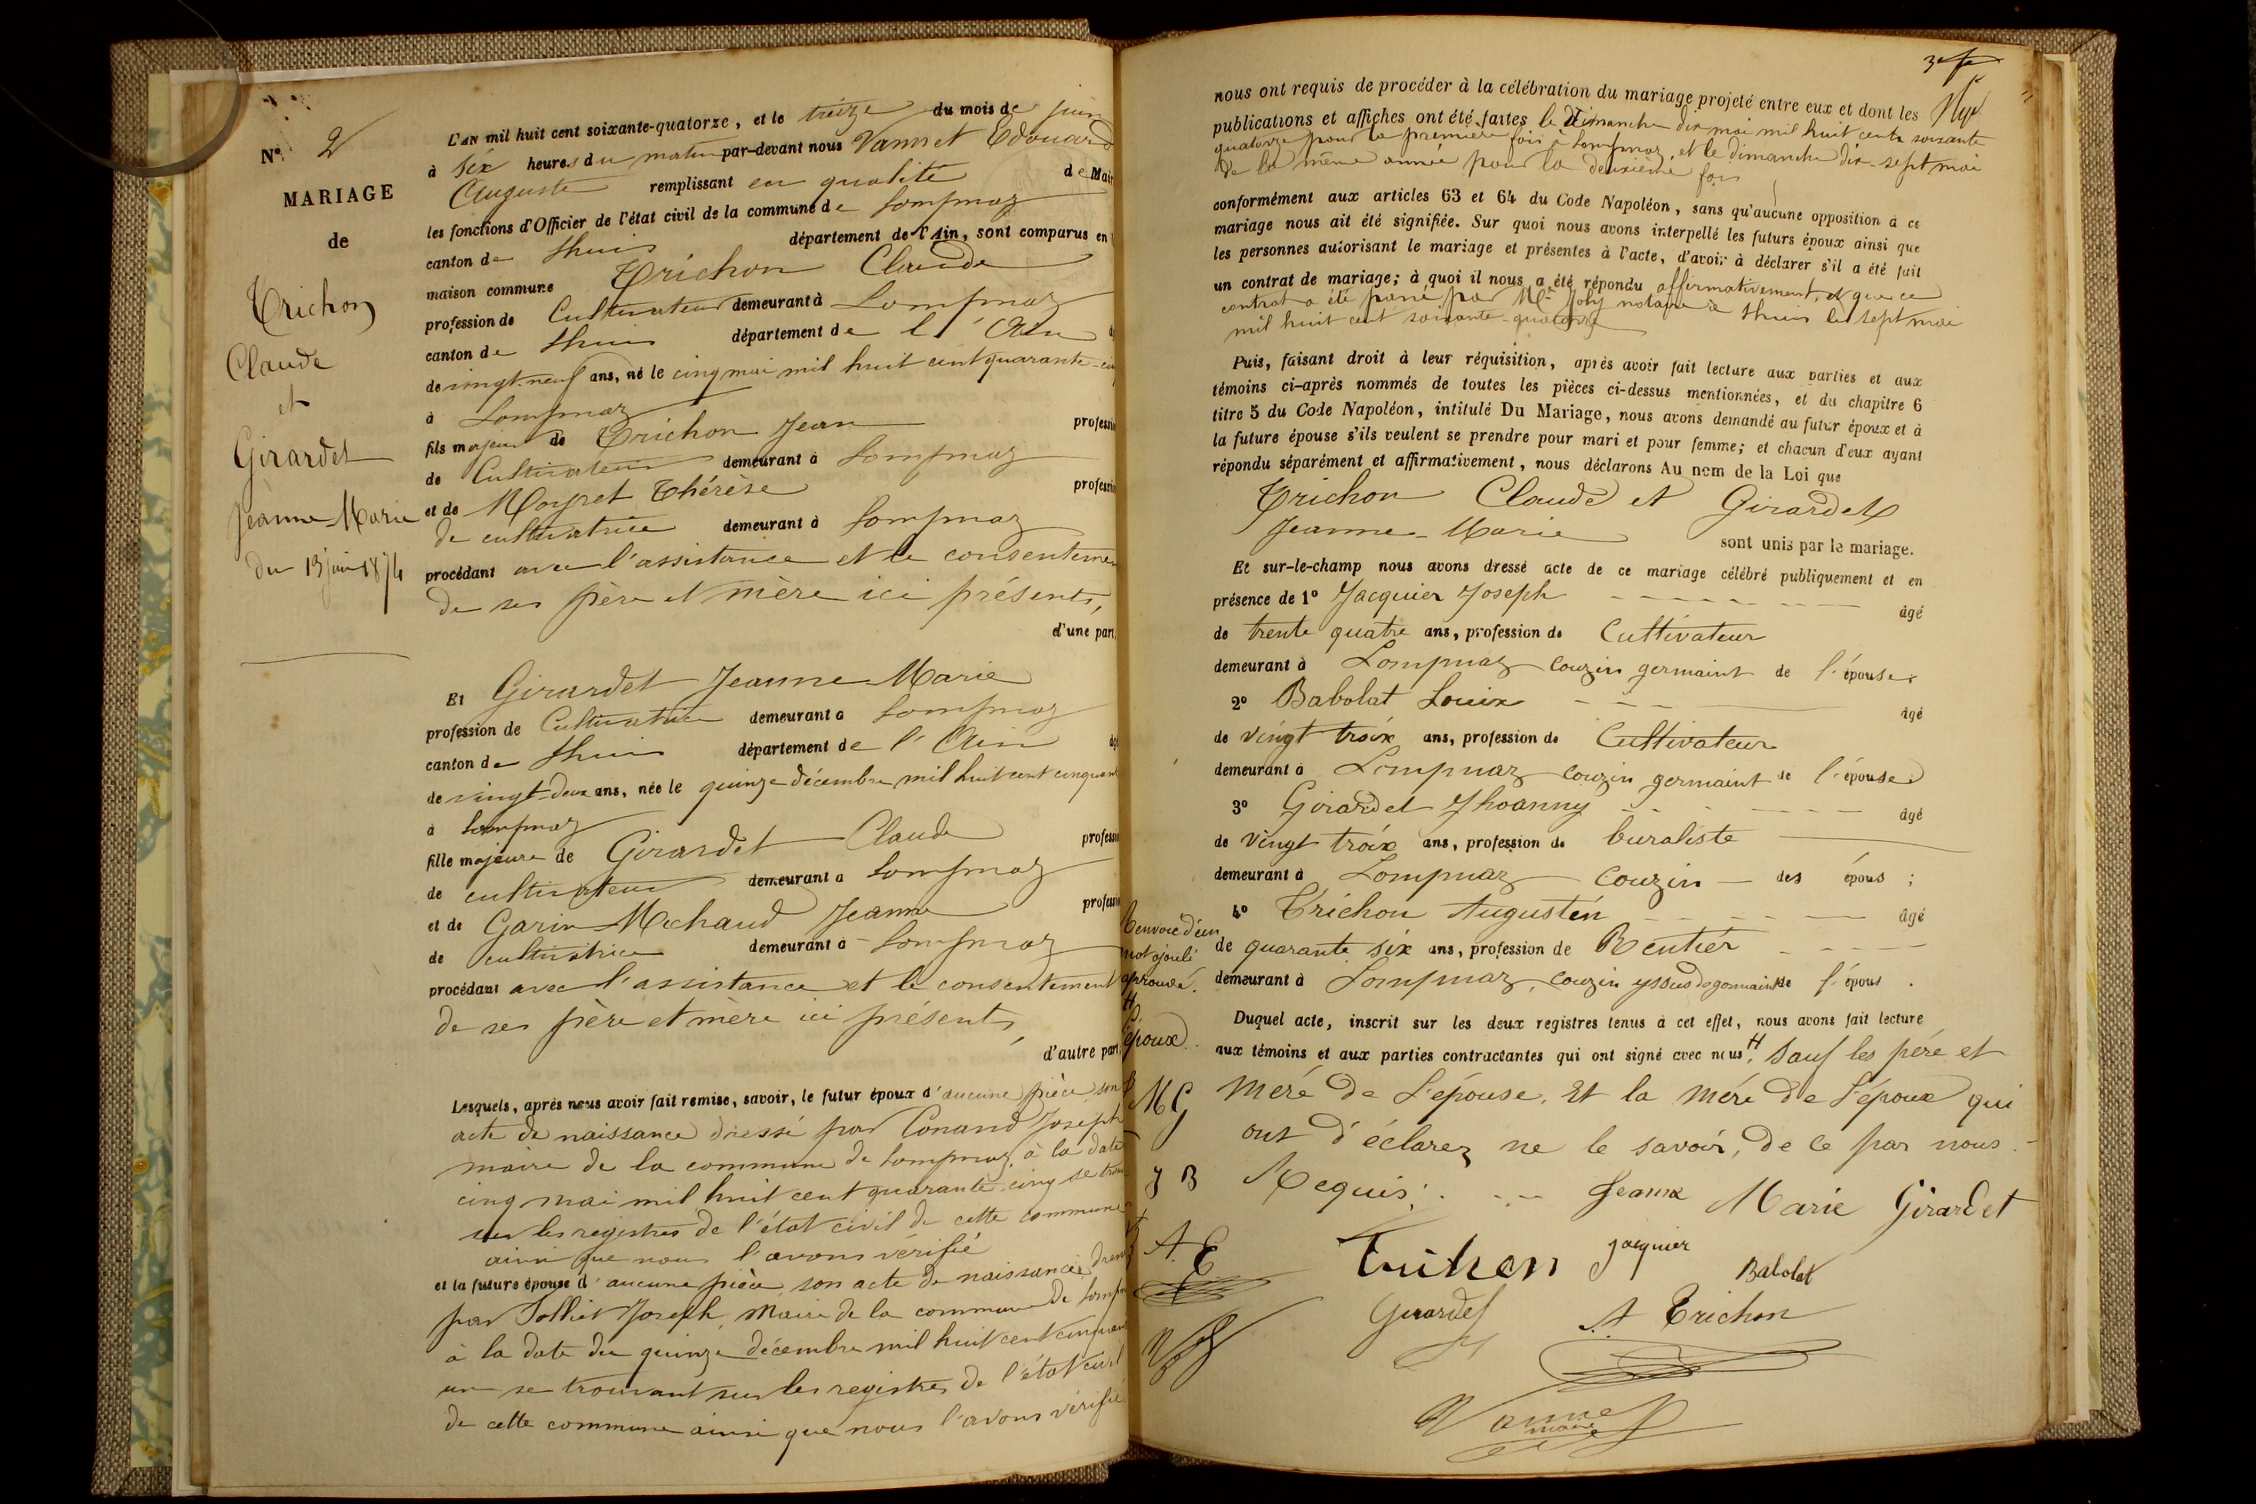 N° 2
MARIAGE
de
Trichon
Claude
et
Girardet
Jeanne-Marie
du 13 juin 1874
L'AN mil huit cent soixante-quatorze, et le treize du mois de juin
à six heures du matin par-devant nous Vannet Edouard
Auguste remplissant en qualité de Mair
les fonctions d'Officier de l'état civil de la commune de Lompnaz
canton de Lhuis département de l'Ain, sont comparus en
maison commune Trichon Claude
profession de Cultivateur demeurant à Lompnaz
canton de Lhuis département de l'Ain
de vingt-neuf ans, né le cinq mai mil huit cent quarante-cinq
à Lompnaz
fils majeur de Trichon Jean professi
de Cultivateur demeurant à Lompnaz
et de Moyret Thérèse professi
de cultivatrice demeurant à Lompnaz
procédant avec l'assistance et le consenteme
de ses père et mère ici présents,
d'une part
Et Girardet Jeanne Marie
profession de Cultivatrice demeurant à Lompnaz
canton de Lhuis département de l'Ain âg
de vingt-deux ans, née le quinze décembre mil huit cent cinquant
à Lompnaz
fille majeure de Girardet Claude professi
de cultivateur demeurant à Lompnaz
et de Garin-Michaud Jeanne professi
de cultivatrice demeurant à Lompnaz
procédant avec l'assistance et le consentement
de ses père et mère ici présents,
d'autre part
Lesquels, après nous avoir fait remise, savoir, le futur époux d'aucune pièce, son
acte de naissance dressé par Conand Joseph
maire de la commune de Lompnaz, à la date
cinq mai mil huit cent quarante-cinq se trou
sur les registres de l'état civil de cette commune
ainsi que nous l'avons vérifié
et la future épouse d'aucune pièce, son acte de naissance, dress
par Jolliet Joseph, Maire de la commune de Lompn
à la date du quinze décembre mil huit cent cinquant
un se trouvant sur les registres de l'état civil
de cette commune ainsi que nous l'avons vérifié
nous ont requis de procéder à la célébration du mariage projeté entre eux et dont les
publications et affiches ont été faites le Dimanche dix mai mil huit cent soixante
quatorze pour la première fois à Lompnaz, et le dimanche dix-sept mai
de la même année pour la deuxième fois
conformément aux articles 63 et 64 du Code Napoléon, sans qu'aucune opposition à ce
mariage nous ait été signifiée. Sur quoi nous avons interpellé les futurs époux ainsi que
les personnes autorisant le mariage et présentes à l'acte, d'avoir à déclarer s'il a été fait
un contrat de mariage; à quoi il nous a été répondu affirmativement, et que ce
contrat a été passé par Me Joly notaire à Lhuis le sept mai
mil huit cent soixante-quatorze
Puis, faisant droit à leur réquisition, après avoir fait lecture aux parties et aux
témoins ci-après nommés de toutes les pièces ci-dessus mentionnées, et du chapitre 6
titre 5 du Code Napoléon, intitulé Du Mariage, nous avons demandé au futur époux et à
la future épouse s'ils veulent se prendre pour mari et pour femme; et chacun d'eux ayant
répondu séparément et affirmativement, nous déclarons Au nom de la Loi que
Trichon Claude et Girardet
Jeanne-Marie sont unis par le mariage.
Et sur-le-champ nous avons dressé acte de ce mariage célébré publiquement et en
présence de 1° Jacquier Joseph âgé
de trente quatre ans, profession de Cultivateur
demeurant à Lompnaz couzin germaint de l'épouse.
2° Babolat Louix âgé
de vingt troix ans, profession de Cultivateur
demeurant à Lompnaz couzin germaint de l'épouse.
3° Girardet Jhoanny âgé
de vingt troix ans, profession de buraliste
demeurant à Lompnaz couzin des épous;
4° Trichon Augustin âgé
de quarante six ans, profession de Rentier
demeurant à Lompnaz, couzin yssus de germaint de l'épous.
Duquel acte, inscrit sur les deux registres tenus à cet effet, nous avons fait lecture
aux témoins et aux parties contractantes qui ont signé avec nous H, Sauf les père et
mère de l'épouse, et la mère de l'époux qui
ont d'éclarez ne le savoir, de ce par nous
Requis.
Renvoie d'un
mot ajouté
aprouvé.
H
époux.
M G
J B
A. E
Jeanne Marie Girardet
Trichon
Jacquier
Babolat
Girardet
A Trichon
Vannet
maire